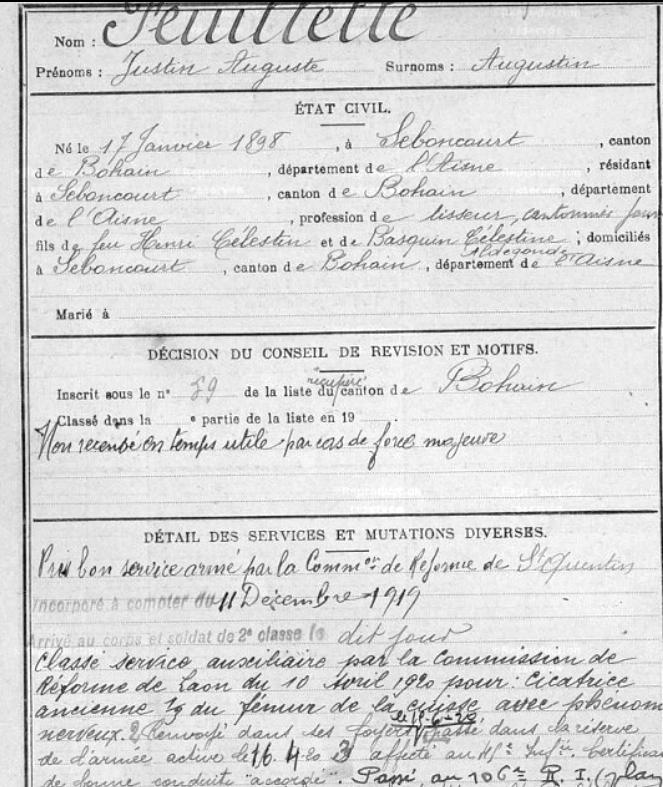 Nom : Feuillette
Prénoms : Justin Auguste Surnoms : Augustin
ÉTAT CIVIL.
Né le 17 Janvier 1898, à Seboncourt, canton
de Bohain, département de l'Aisne, résidant
à Seboncourt, canton de Bohain, département
de l'Aisne, profession de tisseur,
fils de feu Henri Célestin et de Basquin Célestine Aldegonde; domiciliés
à Seboncourt, canton de Bohain, département de l'Aisne
Marié à
DÉCISION DU CONSEIL DE REVISION ET MOTIFS.
Inscrit sous le n° 59 de la liste du récupéré canton de Bohain
Classé dans la e partie de la liste en 19 .
Non recensé en temps utile par cas de force majeure
DÉTAIL DES SERVICES ET MUTATIONS DIVERSES.
bon service armé par la Common de Réforme de St Quentin
Incorporé à compter du 11 Décembre 1919
Arrivé au corps et soldat de 2e classe le dit jour
Classé service auxiliaire par la Commission de
Réforme de Laon du 10 Avril 1920 pour : Cicatrice
ancienne du fémur de la cuisse avec phénom
nerveux. Renvoyé dans ses foyers le passé dans la réserve
de l'armée active le 16.4.20 affecté au Infie. Certificat
de bonne conduite "accordé". Passé au 106e R.I. (plan